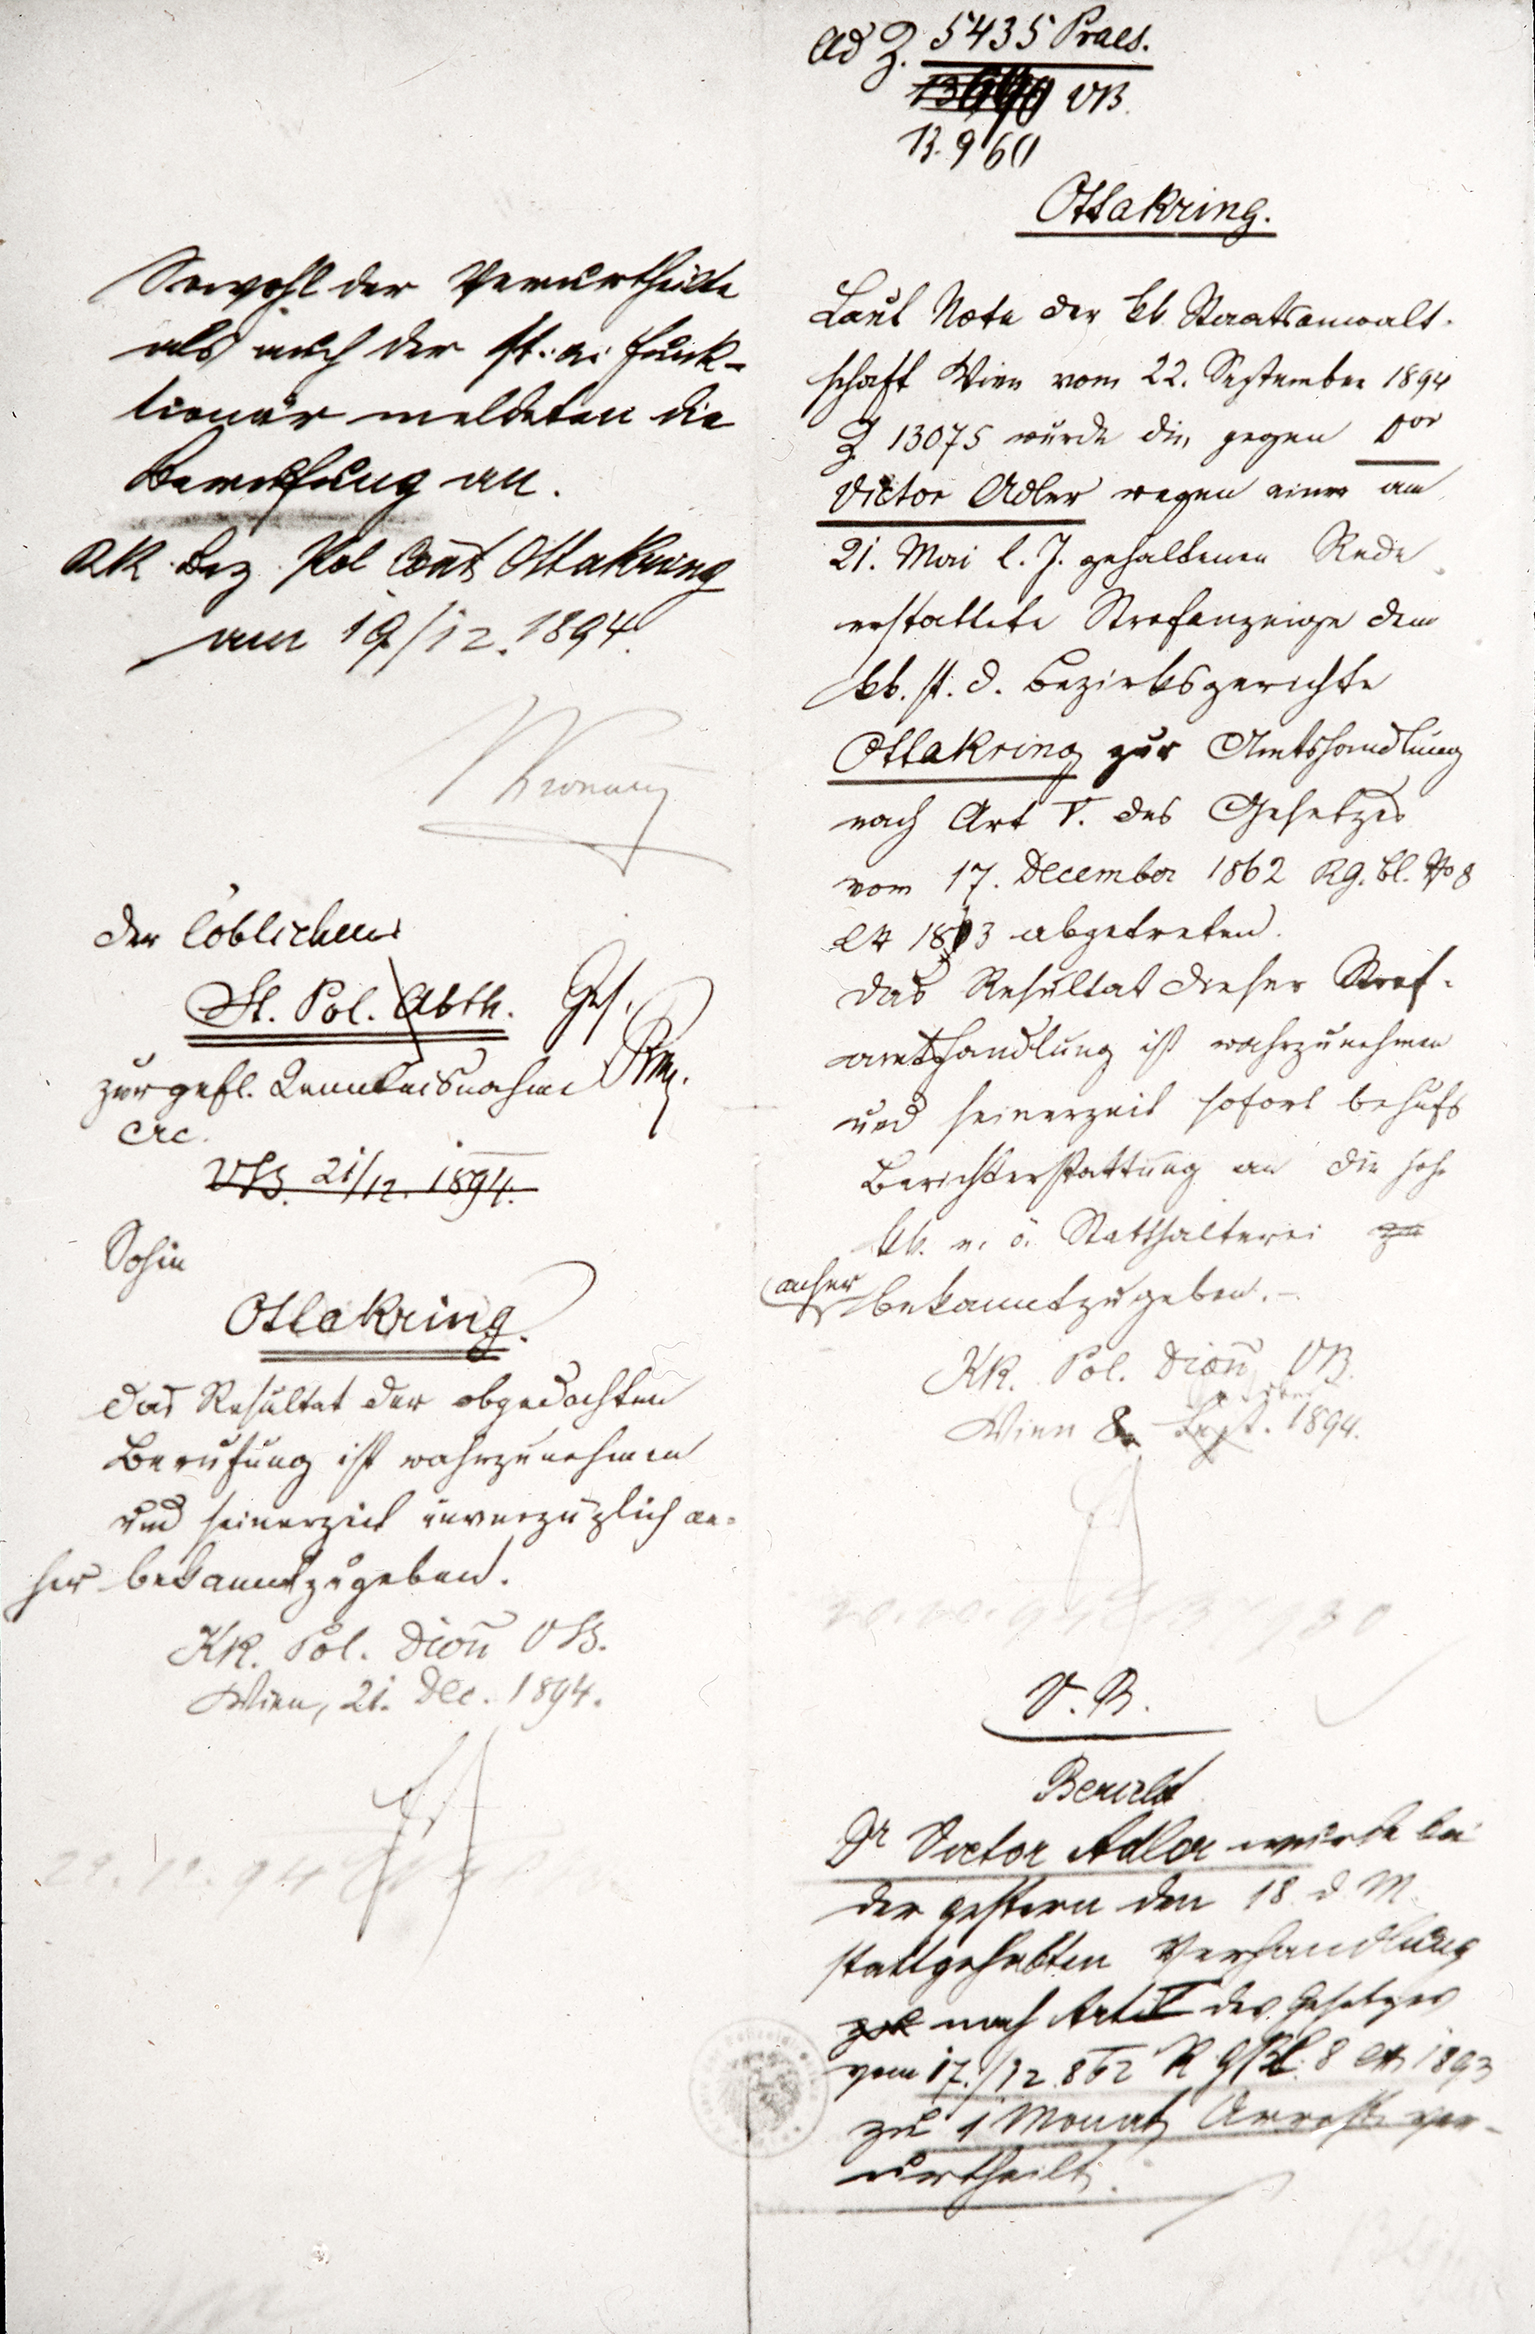 ad Z. 5435 Praes.
13690 VB.
13.960
Ottakring.
Laut Note der kk. Staatsanwalt-
schaft Wien vom 22. September 1894
Z 13075 wurde die, gegen Dor
Victor Adler wegen einer am
21. Mai l. J. gehaltenen Rede
erstattete Strafanzeige dem
kk. st. d. Bezirksgerichte
Ottakring zur Amtshandlung
nach Art V. des Gesetzes
vom 17. December 1862 Rg. bl. No 8
ex 1863 abgetreten.
Das Resultat dieser Straf-
amtshandlung ist wahrzunehmen
und seinerzeit sofort behufs
Berichterstattung an die hohe
kk. n. ö. Statthalterei zu
anher bekanntzugeben.-
KK. Pol. Dion VB.
Wien 8. Sept. October 1894.
V. B.
Bericht
Dr Victor Adler wurde bei
der gestern den 18. d. M.
stattgehabten Verhandlung
nach Art V des Gesetzes
vom 17./12 862 R G Bl. 8 ex 1893
zu 1 Monat Arrest ver-
urtheilt.
Sowohl der Verurtheilte
als auch der st. a. Funk-
tionär meldeten die
Berufung an.
KK. Bez. Pol. Coat Ottakring
am 19/12. 1894.
Der löblichen
St. Pol. Abth. Ges.
zur gefl. Kenntnisnahme
etc.
VB. 21/12. 1894.
Sohin
Ottakring.
Das Resultat der obgedachten
Berufung ist wahrzunehmen
und seinerzeit unverzüglich an-
her bekanntzugeben.
KK. Pol. Dion VB.
Wien, 21. Dec. 1894.